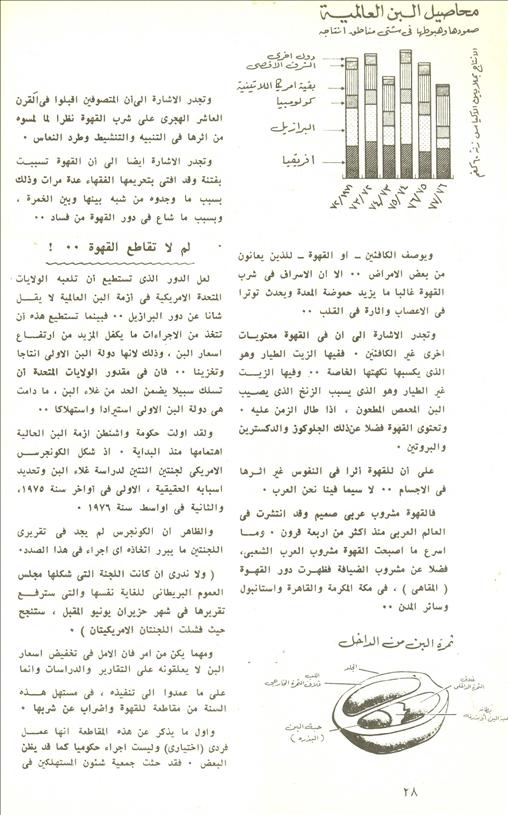 محاصيل البن العالمية
صعودها وهبوطها فى شتى مناطق انتاجه
الانتاج بملايين الاكياس زنة ٦٠ كغم
دول اخرى
الشرق الاقصى
بقية امريكا اللاتينية
كولومبيا
البرازيل
افريقيا
٧٣/٧٢
٧٤/٧٣
٧٥/٧٤
٧٦/٧٥
٧٧/٧٦
ويوصف الكافئين ــ او القهوة ــ للذين يعانون
من بعض الامراض ٠٠ الا ان الاسراف فى شرب
القهوة غالبا ما يزيد حموضة المعدة ويحدث توترا
فى الاعصاب واثارة فى القلب ٠٠
وتجدر الاشارة الى ان فى القهوة محتويات
اخرى غير الكافئين ٠ ففيها الزيت الطيار وهو
الذى يكسبها نكهتها الخاصة ٠٠ وفيها الزيــت
غير الطيار وهو الذى يسبب الزنخ الذى يصـيب
البن المحمص المطعون ، اذا طال الزمن عليه ٠
وتحتوى القهوة فضلا عن ذلك الجلوكوز والدكسترين
والبروتين ٠
على أن للقهوة أثرا فى النفوس غير اثـرها
فى الاجسام ٠٠ لا سيما فينا نحن العرب ٠
فالقهوة مشروب عربى صميم وقد انتشرت فى
العالم العربى منذ اكثر من اربعة قرون ٠ ومـا
اسرع ما اصبحت القهوة مشروب العرب الشعبى،
فضلا عن مشروب الضيافة فظهـرت دور القهـوة
( المقاهى ) ، فى مكة المكرمة والقاهرة واستانبول
وسائر المدن ٠٠
ثمرة البن من الداخل
الجلد
اللب
غلاف الثمرة الخارجى
غلاف
الثمرة الداخلى
حبة البن
(البذرة)
وتجدر الاشارة الى أن المتصوفين اقبلوا فى القرن
العاشر الهجرى على شرب القهوة نظرا لما لمسوه
من اثرها فى التنبيه والتنشيط وطرد النعاس ٠
وتجدر الاشارة ايضا الى أن القهوة تسببـت
بفتنة وقد افتى بتحريمها الفقهاء عدة مرات وذلك
بسبب ما وجدوه من شبه بينها وبين الخمرة ،
وبسبب ما شاع فى دور القهوة من فساد ٠٠
لم لا تقاطع القهوة ٠٠ !
لعل الدور الذى تستطيع أن تلعبه الولايات
المتحدة الامريكية فى أزمة البن العالمية لا يقــل
شانا عن دور البرازيل ٠٠ فبينما تستطيع هذه أن
تتخذ من الاجراءات ما يكفل المزيد من ارتفـاع
اسعار البن ، وذلك لانها دولة البن الاولى انتاجا
وتخزينا ٠٠ فان فى مقدور الولايات المتحدة أن
تسلك سبيلا يضمن الحد من غلاء البن ، ما دامت
هى دولة البن الاولى استيرادا واستهلاكا ٠٠
ولقد اولت حكومة واشنطن ازمة البن الحالية
اهتمامها منذ البداية ٠ اذ شكل الكونجرســ
الامريكى لجنتين اثنتين لدراسة غلاء البن وتحديد
اسبابه الحقيقية ، الاولى فى أواخر سنة ١٩٧٥،
والثانية فى اواسط سنة ١٩٧٦ ٠
والظاهر أن الكونجرس لم يجد فى تقريرى
اللجنتين ما يبرر اتخاذه اى اجراء فى هذا الصدد٠
( ولا ندرى ان كانت اللجنة التى شكلها مجلس
العموم البريطانى للغاية نفسها والتى سترفــع
تقريرها فى شهر حزيران يونيو المقبل ، ستنجح
حيث فشلت اللجنتان الامريكيتان ) ٠
ومهما يكن من امر فان الامل فى تخفيض اسعار
البن لا يعلقونه على التقارير والدراسات وانما
على ما عمدوا الى تنفيذه ، فى مستهل هــذه
السنة من مقاطعة للقهوة واضراب عن شربها ٠
واول ما يذكر عن هذه المقاطعة انها عمــل
فردى (اختيارى) وليست اجراء حكوميا كما قد يظن
البعض ٠ فقد حثت جمعية شئون المستهلكين فى
٢٨